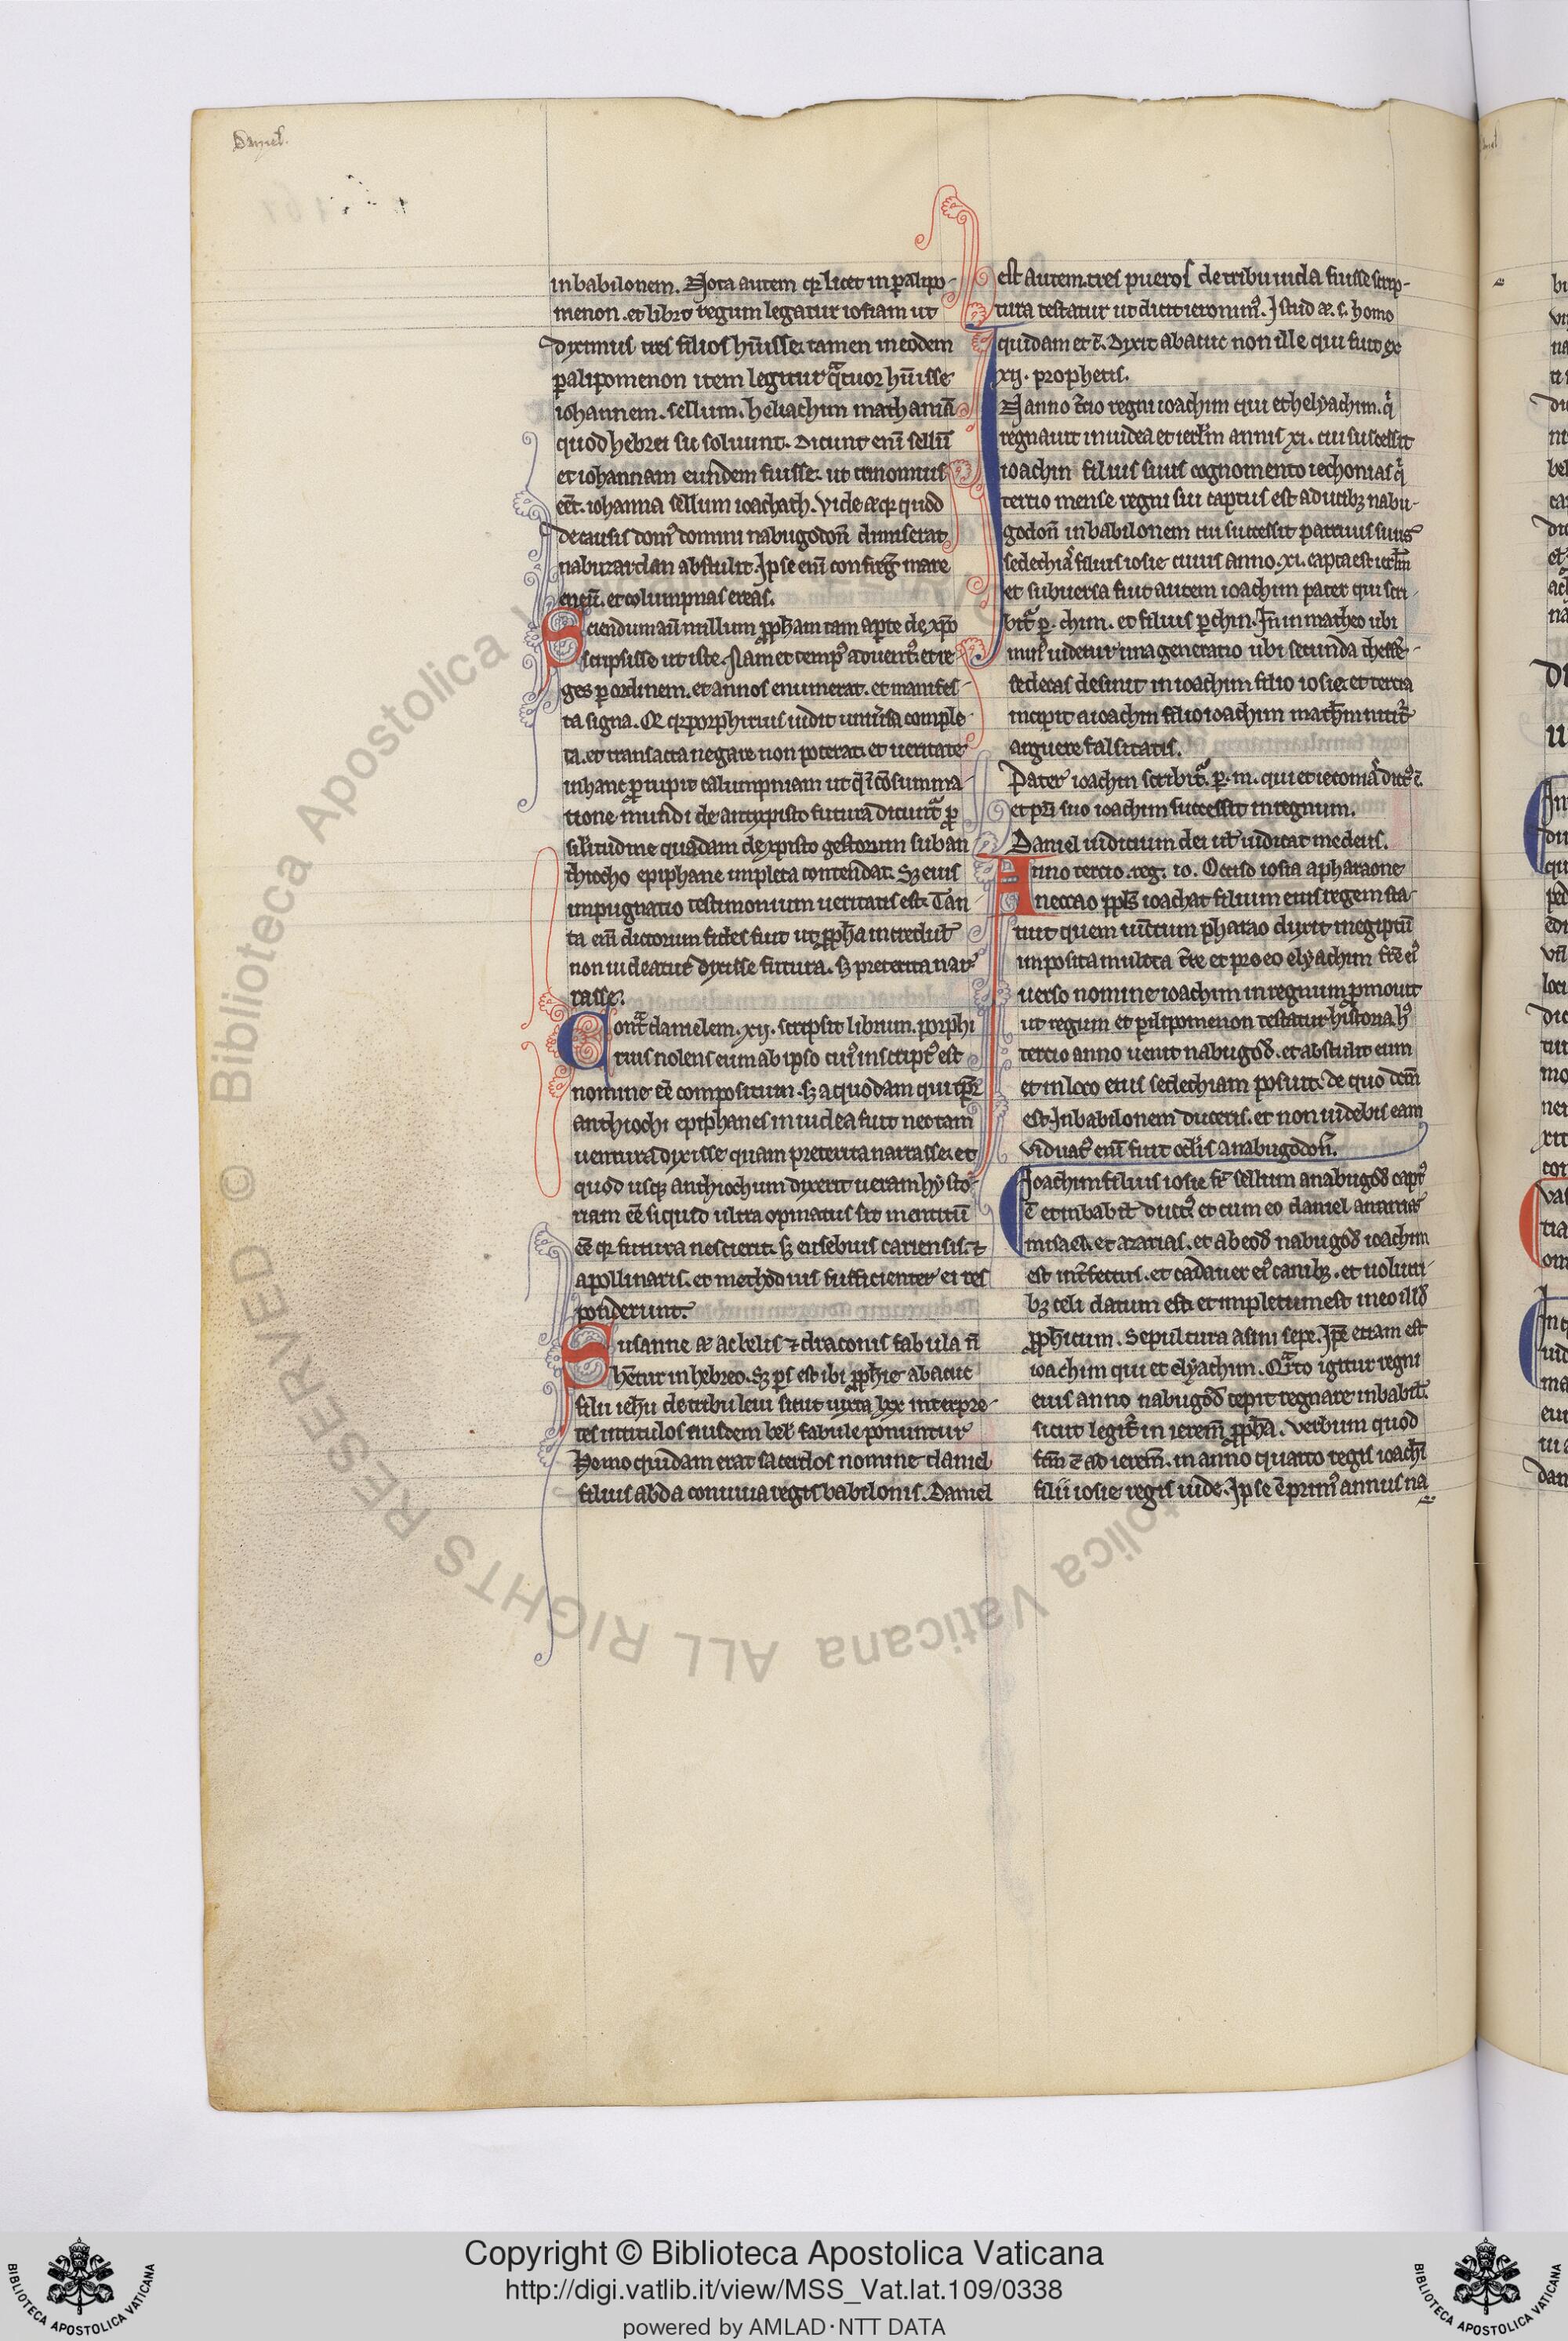 Daniel.
in babilonem. Nota autem qꝫ licet in palipo-
menon. et libro regum legatur iosiam ut
diximus tres filios hũisse. tamen in eodem
palipomenon item legitur qͣtuor hũisse
iohannem. sellum. heliachim mathaniã
quod hebrei sic soluunt. Dicunt enĩ sellũ
et iohannam eundem fuisse. ut
eēt. iohanna sellum ioachath. Vide
de causis domꝰ domini nabugodoñ dimiserat
nabuzardan abstulit. Ipse enĩ confreg̃ mare
eneũ. et columpnas ereas.
Sciendum aũ nullum ꝓph̃am tam aperte de xp̃o
scripsisse ut iste. Nam et tempꝰ aduentꝰ. et re
ges p ordinem. et annos enumerat. et manifes-
ta signa. Qꝫ porphirius uidit uniũsa comple
ta. et transacta negare non poterat. et ueritate
in hanc prupit calumpniam ut q̃ ĩ cõsumma-
tione mundi de antixpisto futura dicunt̃ ꝓ
silitudine quadam de xpisto gestorum sub an
thiocho epiphane impleta contendat. Sꝫ eius
impugnatio testimonium ueritatis est. Tan
ta eni dictorum fides fuit ut ꝓph̃a incredul̃
non uideatur dixisse futura. sꝫ preterita nar
rasse.
Contͣ danielem. xij. scripsit librum. porphi
rius nolens eum ab ipso cuiꝰ inscriptꝰ est
nomine eẽ compositum. sꝫ a quodam qui tp̃r
anthiochi epiphanes in iudea fuit nec tam
uentura dixisse quam preterita narrasse. et
quod usqꝫ anthiochum dixerit ueram hysto-
riam eẽ si quid ultra opinatus sit mentitũ
eẽ qꝫ futura nescierit. sꝫ eusebius cariensis. ⁊
apollinaris. et methodius sufficienter ei res
ponderunt.
Susanne ac belis ⁊ draconis fabula ñ
hẽtur in hebreo. Sꝫ ps̃ est ibi ꝓph̃ie abacuc
filii ieh̃u de tribu leui sicut iuxta lxx interpre-
tes in titulo eiusdem bel̃ fabule ponuntur
Homo quidam erat sacerdos nomine daniel
filius abda conuiua regis babilonis. Daniel
est autem. tres pueros de tribu iuda fuisse scrip-
tura testatur ut dicit ieronimꝰ. Istud homo
quidam et c̃. Dixit abacuc non ille qui fuit ex
xij. prophetis.
IN anno t̃cio regni ioachim qui et helyachim. q̃
regnauit in iudea et ierl̃m annis xi. cui successit
ioachin filius suus cognomento iechonias q̃
tercio mense regni sui captus est a ducibꝫ nabu-
godoñ in babilonem cui successit patruus suus
sedechias filius iosie cuius anno. xi. capta est ierl̃m
et subuersa fuit autem ioachim pater qui scri-
bit̃ p. chim. et filius p chin. Iñ in matheo ubi
uidetur una generatio ubi secunda thesse-
redecas desinit in ioachim filio iosie. et tercia
incipit a ioachin filio ioachim math̃m nitit̃
arguere falsitatis.
Pater ioachin scribit̃. p. m. qui et ieconias dictꝰ ē.
et pr̃i suo ioachim successit in regnum.
Daniel iudicium dei uel̃ iudicat me deus.
Anno tercio. reg. io. Occiso iosia a pharaone
neccao ꝓpl̃s ioachat filium eius regem sta-
tuit quem uictum pharao duxit in egiptũ
imposita mulcta t̃re et pro eo elyachim fr̃e eiꝰ
uerso nomine ioachim in regnum pmouit
ut regum et palipomenon testatur historia. hꝰ
tercio anno uenit nabugod̃. et abstulit eum
et in loco eius sedechiam posuit. de quo dc̃m
est. In babilonem duceris. et non uidebis eam
Viduatꝰ enĩ fuit ocl̃is a nabugodoñ.
Ioachim filius iosie fr̃ sellum a nabugod̃ captꝰ
ē et in babil̃ ductꝰ. et cum eo daniel ananias
misael. et azarias. et ab eod̃ nabugod̃ ioachim
est int̃fectus. et cadauer eiꝰ canibꝫ. et uolucri-
bꝫ celi datum est. et impletum est in eo illd̃
ꝓph̃icum. Sepultura asini sepe. Ip̃e etiam est
ioachim qui et elyachim. Qͣrto igitur regni
eius anno nabugod̃ cepit regnare in babil̃.
sicut legit̃ in ierem̃ ꝓph̃a. Verbum quod
fc̃m ē ad ierem̃. in anno quarto regis ioachĩ
filii iosie regis iude. Ipse ē primꝰ annus na
Copyright © Biblioteca Apostolica Vaticana
http://digi.vatlib.it/view/MSS_Vat.lat.109/0338
powered by AMLAD·NTT DATA
BIBLIOTECA APOSTOLICA VATICANA
BIBLIOTECA APOSTOLICA VATICANA
© Biblioteca Apostolica Vaticana ALL RIGHTS RESERVED